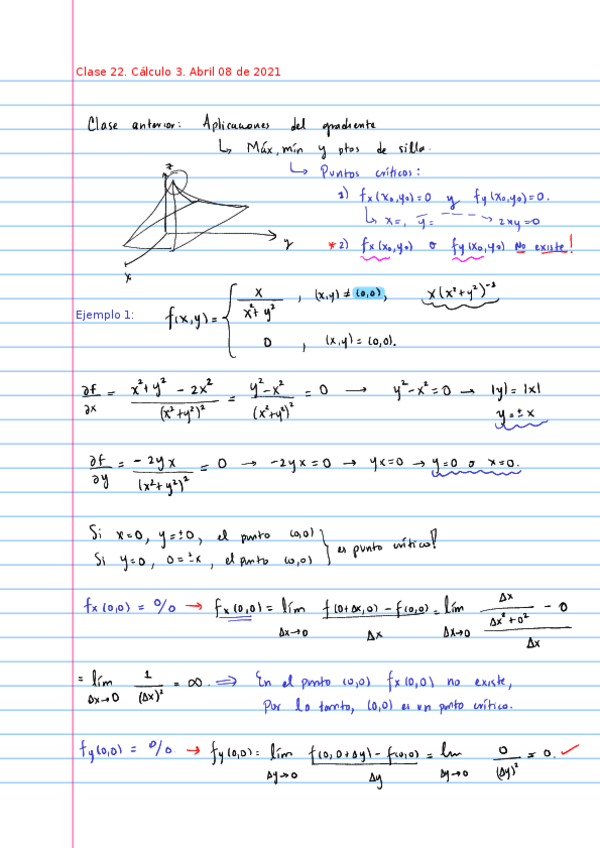 Clase 22. Cálculo 3. Abril 08 de 2021
Clase anterior: Aplicaciones del gradiente
↳ Máx, mín y ptos de silla.
↳ Puntos críticos:
1) fx(x₀,y₀)=0 y fy(x₀,y₀)=0.
↳ x=, y= ----→ 2xy=0
* 2) fx(x₀,y₀) o fy(x₀,y₀) no existe!
z
y
x
Ejemplo 1: f(x,y) = { x/(x²+y²) , (x,y) ≠ (0,0), x(x²+y²)⁻¹
0 , (x,y) = (0,0).
∂f/∂x = (x²+y² − 2x²)/(x²+y²)² = (y²−x²)/(x²+y²)² = 0 → y²−x²=0 → |y| = |x|
y = ± x
∂f/∂y = −2yx/(x²+y²)² = 0 → −2yx=0 → yx=0 → y=0 o x=0.
Si x=0, y=±0, el punto (0,0) } es punto crítico!
Si y=0, 0=±x, el punto (0,0)
fx(0,0) = 0/0 → fx(0,0) = lím Δx→0 (f(0+Δx,0) − f(0,0))/Δx = lím Δx→0 (Δx/(Δx²+0²) − 0)/Δx
= lím Δx→0 1/(Δx)² = ∞. ⟹ En el punto (0,0) fx(0,0) no existe,
Por lo tanto, (0,0) es un punto crítico.
fy(0,0) = 0/0 → fy(0,0) = lím Δy→0 (f(0,0+Δy) − f(0,0))/Δy = lím Δy→0 0/(Δy)² = 0. ✓